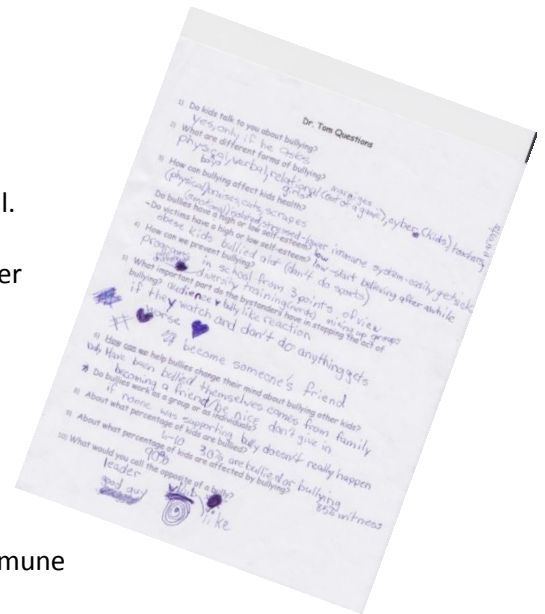 l.
er
mune
Dr. Tom Questions
1) Do kids talk to you about bullying?
yes, only if he asks
2) What are different forms of bullying?
physical, verbal, relational (out of a game), cyber (kids) teachers, parents
boys girls
3) How can bullying affect kids health?
(physical) bruises, cuts, scrapes
(emotional) stressed-lower immune system-easily get sick
Do bullies have a high or low self-esteem? low
-Do victims have a high or low self-esteem? low-start believing after awhile
obese kids bullied alot (don't do sports)
4) How can we prevent bullying?
programs in school from 3 points of view
diversity training (nerds) mixing up groups
5) What important part do the bystanders have in stopping the act of
bullying? audience bully like reaction
if they watch and don't do anything gets
worse
become someone's friend
6) How can we help bullies change their mind about bullying other kids?
bully Have been bullied themselves comes from family
becoming a friend/be nice don't give in
7) Do bullies work as a group or as individuals?
if noone was supporting bully doesn't really happen
8) About what percentage of kids are bullied?
30% are bullied or bullying
9) About what percentage of kids are affected by bullying?
90% 85% witness
10) What would you call the opposite of a bully?
leader
good guy
like